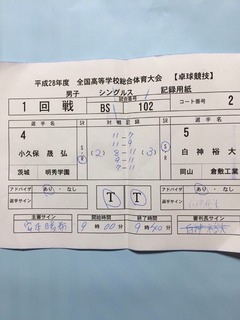 平成28年度 全国高等学校総合体育大会 【卓球競技】
男子 シングルス 記録用紙
1 回 戦
試合番号
BS 102
コート番号 2
選手 SR 対戦記録 SR 選手
4
小久保 晟弘
茨城 明秀学園
11 - 7
11 - 9
(2) 8 - 11 (3)
9 - 11
8 - 11
5
白神 裕大
岡山 倉敷工業
アドバイザ あり・なし
選手サイン
T T
アドバイザ あり・なし
選手サイン
主審サイン 開始時間 終了時間 審判長サイン
9 時 00 分 9 時 40 分